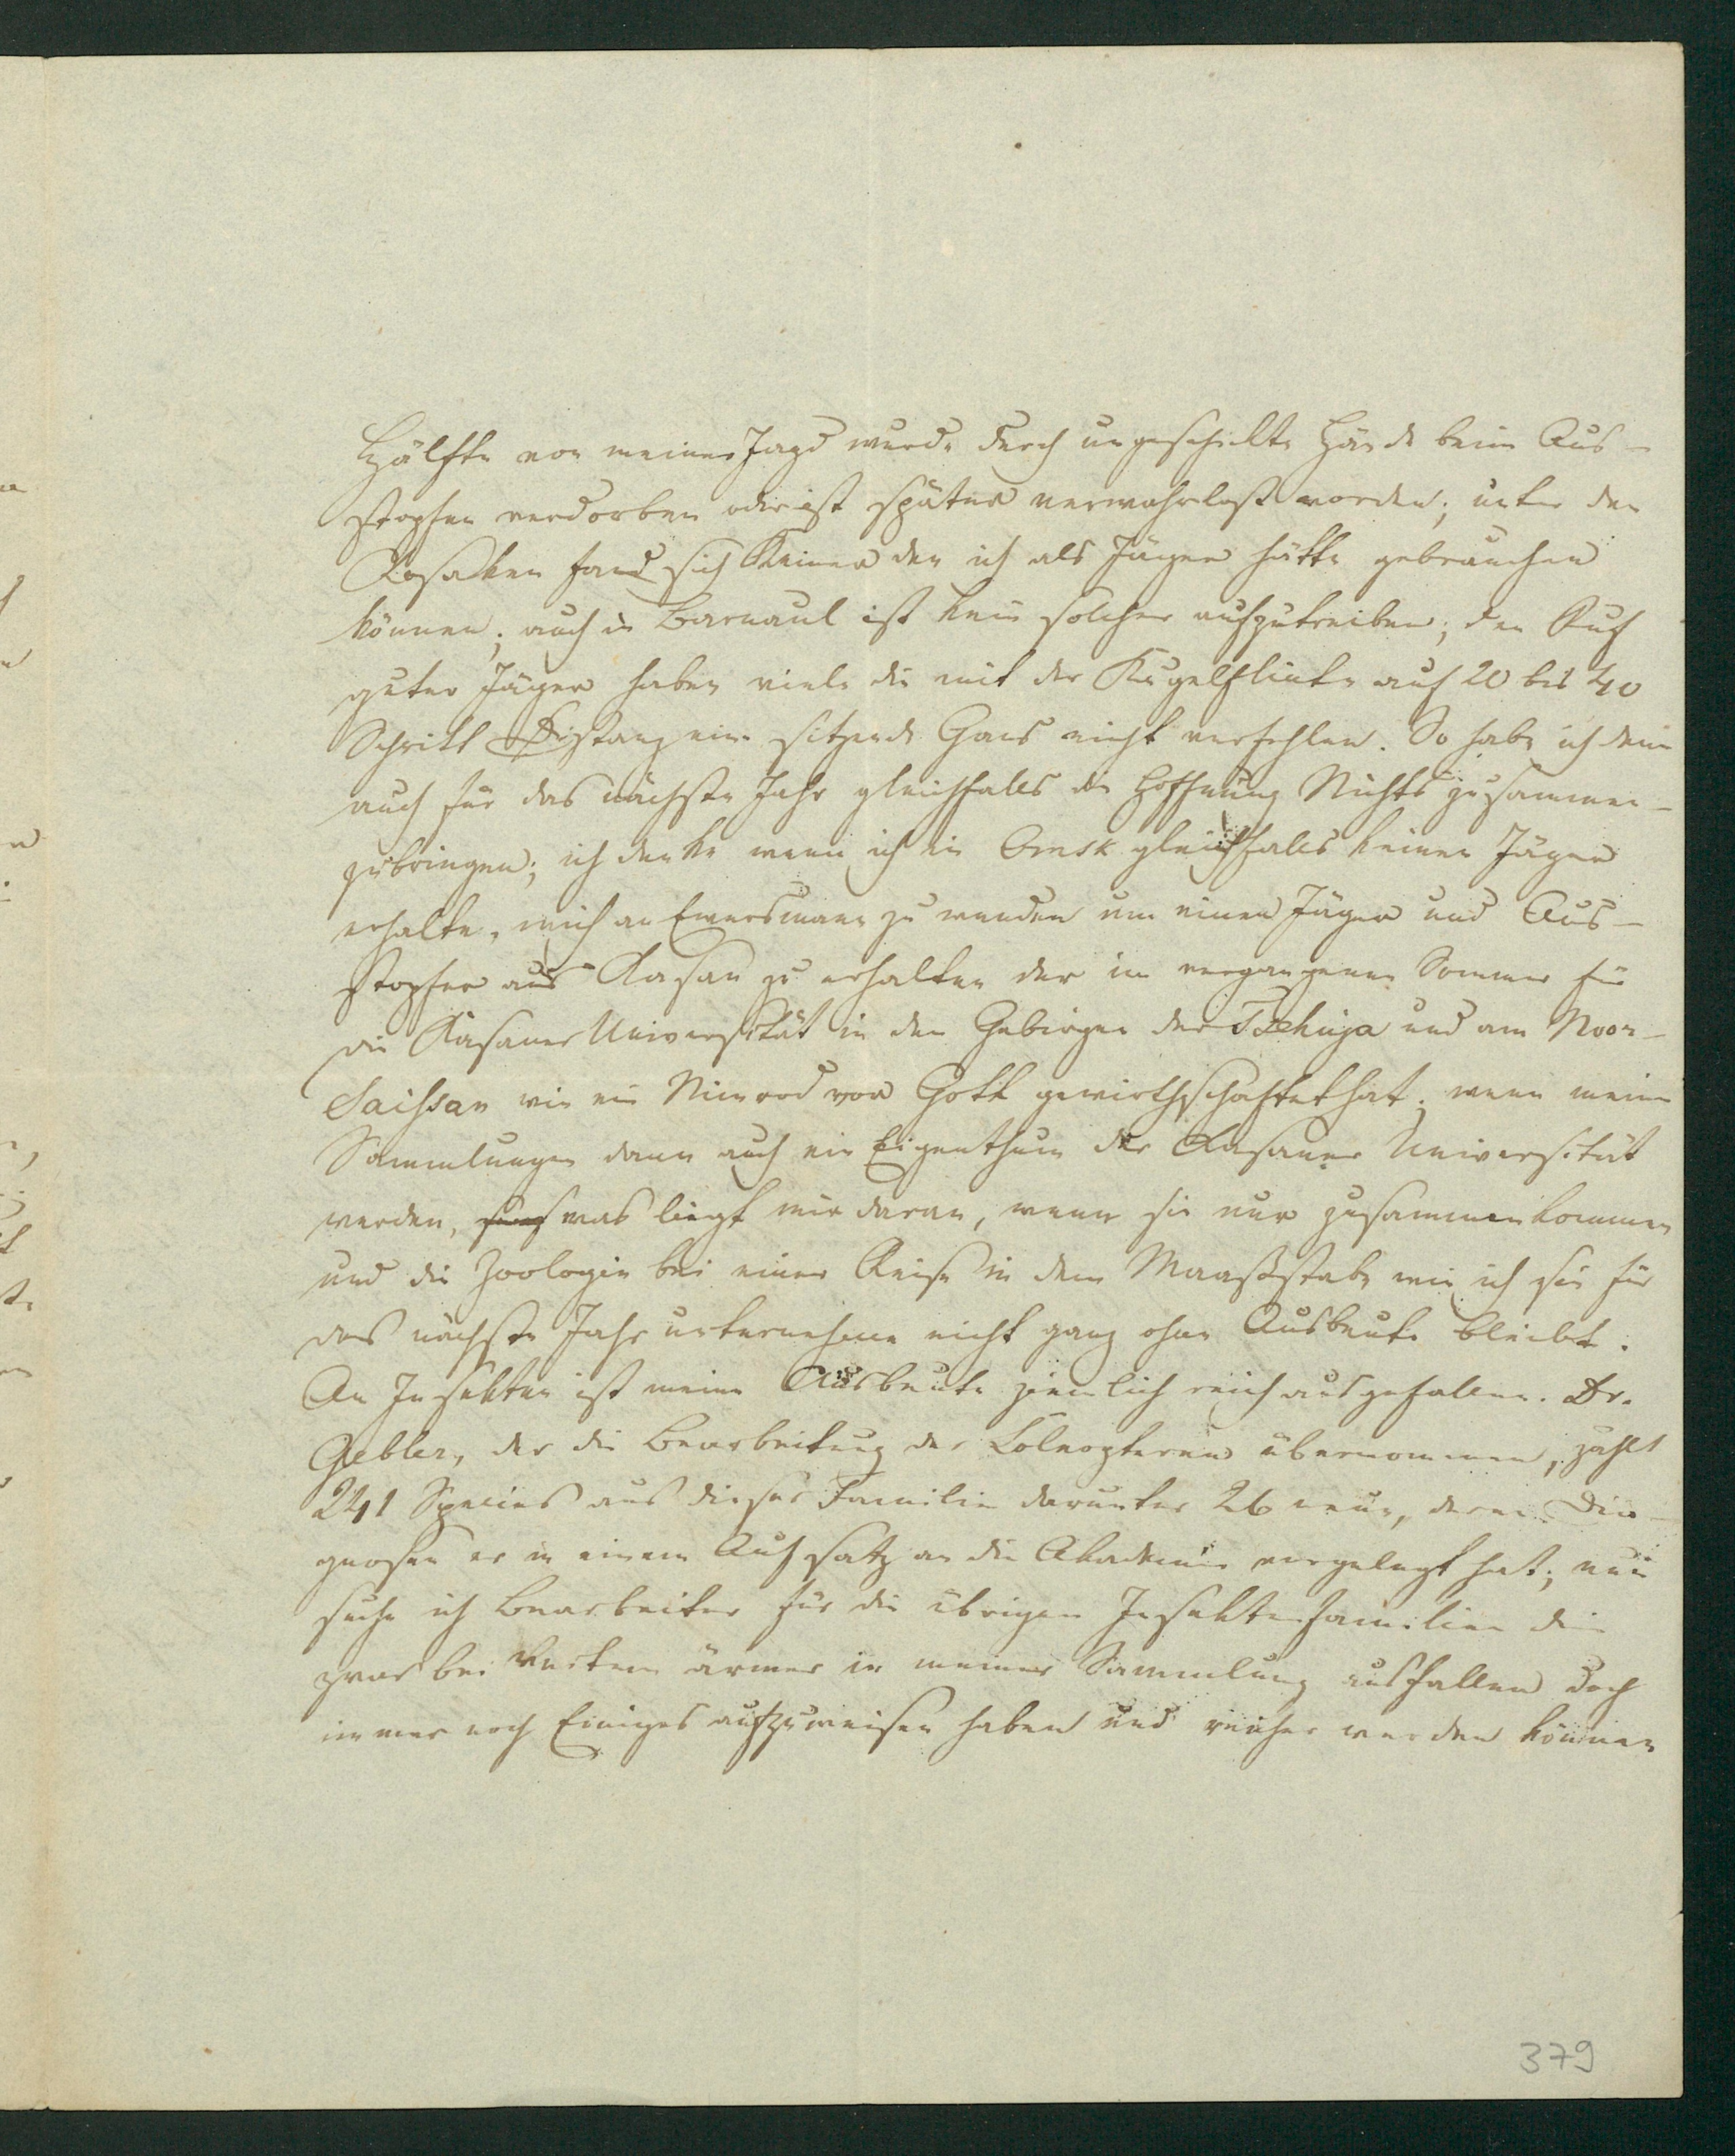 Hälfte von meiner Jagd wurde durch ungeschikte Hände beim Aus-
stopfen verdorben oder ist später verwahrlost worden; unter den
Kosaken fand sich Keiner den ich als Jäger hätte gebrauchen
können; auch in Barnaul ist kein solcher aufzutreiben; den Ruf
guter Jäger haben viele die mit der Kugelflinte auf 20 bis 40
Schritt Distanz eine sitzende Gans nicht verfehlen. So habe ich denn
auch für das nächste Jahr gleichfalls die Hoffnung Nichts zusammen-
zubringen; ich denke wenn ich in Omsk gleichfalls keinen Jäger
erhalte, mich an Eversmann zu wenden um einen Jäger und Aus-
stopfer aus Kasan zu erhalten der im vergangenen Sommer für
die Kasaner Universität in den Gebirgen der Tschuja und am Noor-
Saissan wie ein Nimrod vor Gott gewirthschaftet hat; wenn meine
Sammlungen dann auch ein Eigenthum der Kasaner Universität
werden, was liegt mir daran, wenn sie nur zusammenkommen
und die Zoologie bei einer Reise in dem Maaßstabe wie ich sie für
das nächste Jahr unternehme nicht ganz ohne Ausbeute bleibt.
An Insekten ist meine Ausbeute ziemlich reich ausgefallen. Dr.
Gebler, der die Bearbeitung der Coleopteren übernommen, zählt
241 Species aus dieser Familie darunter 26 neue, deren Dia-
gnosen er in einem Aufsatz an die Akademie vorgelegt hat; nun
suche ich Bearbeiter für die übrigen Insektenfamilien die
zwar bei Weitem ärmer in meiner Sammlung ausfallen doch
immer noch Einiges aufzuweisen haben und reicher werden können
379